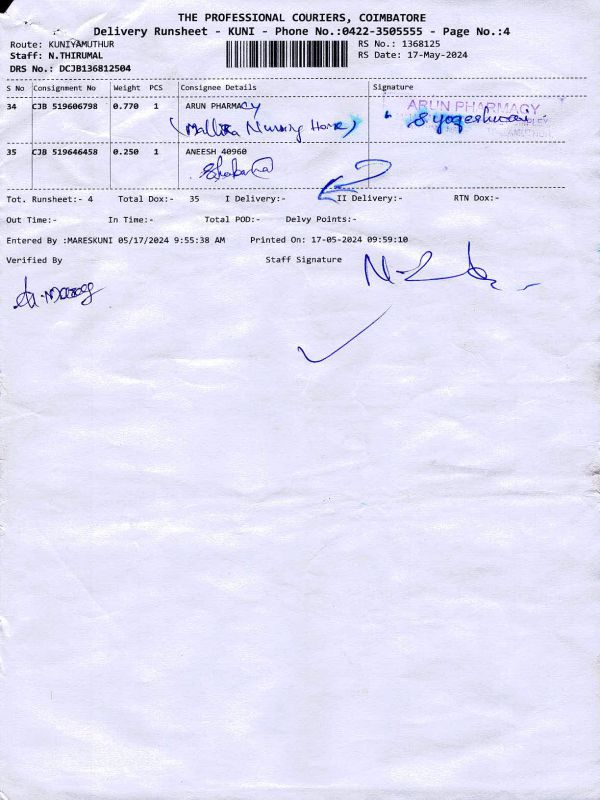 THE PROFESSIONAL COURIERS, COIMBATORE
Delivery Runsheet - KUNI - Phone No.:0422-3505555 - Page No.:4
Route: KUNIYAMUTHUR RS No.: 1368125
Staff: N.THIRUMAL RS Date: 17-May-2024
DRS No.: DCJB136812504
S No Consignment No Weight PCS Consignee Details Signature
34 CJB 519606798 0.770 1 ARUN PHARMACY ARUN PHARMACY
(Mallika Nursing Home) S. yogeshwari
35 CJB 519646458 0.250 1 ANEESH 40960
Tot. Runsheet:- 4 Total Dox:- 35 I Delivery:- II Delivery:- RTN Dox:-
Out Time:- In Time:- Total POD:- Delvy Points:-
Entered By :MARESKUNI 05/17/2024 9:55:38 AM Printed On: 17-05-2024 09:59:10
Verified By Staff Signature